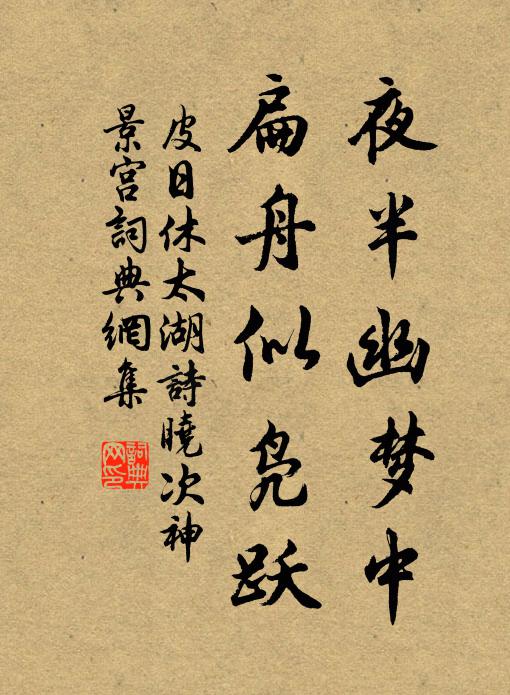 夜半幽梦中
扁舟似凫跃
皮日休太湖詩曉次神
景宫詞典網集
詞典
网印